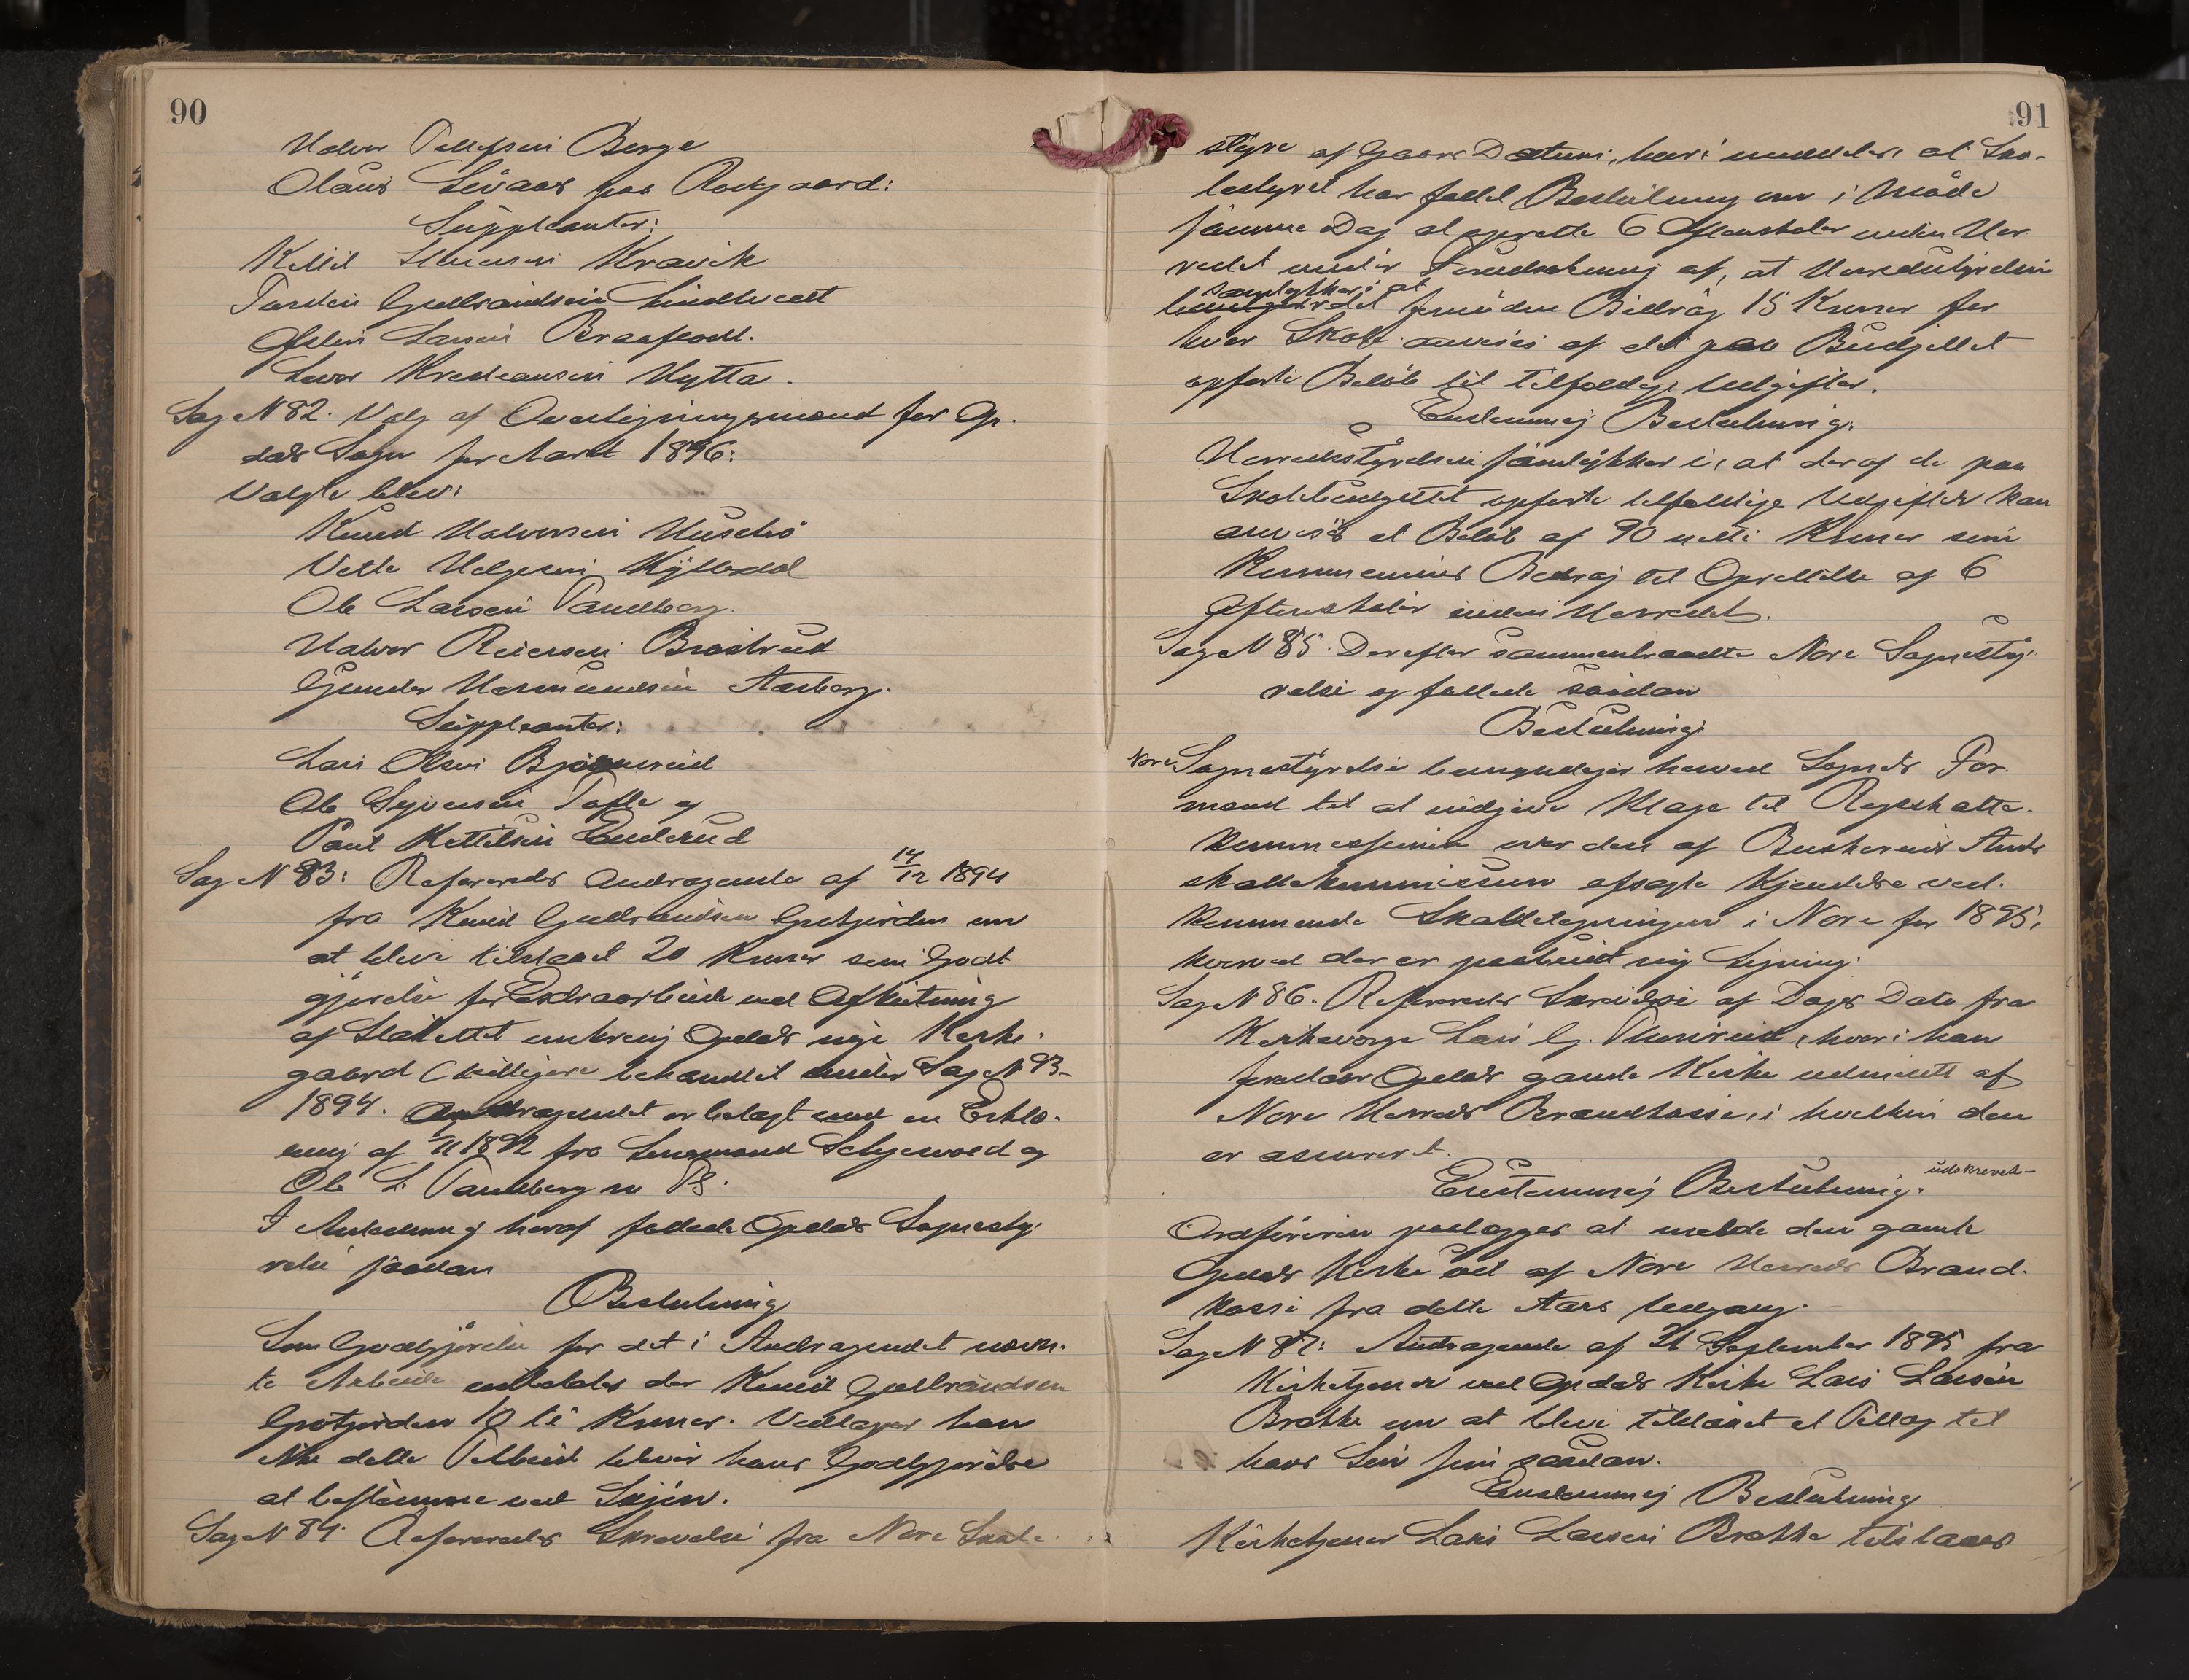 90
Halvor Tollefsen Berge
Olaus Sevaas paa Rodgaard:
Suppleanter:
Kittil Kravik
Torsten Gulbrandsen Sindteveet
Østen Larsen Braaflodt.
Sevor Kristiansen Hytta.
Sag N 82. Valg af Overligningsmænd for Op-
dals Sogn for Aaret 1896:
Valgte blev:
Knud Halvorsen
Vetle Helgesen Kjytterdal
Ole Larsen Tandberg.
Halvor Reiersen Brostrud
Gunder Aasberg.
Suppleanter:
Lars Olsen Bjørnerud
Ole Syversen Tofte og
Paul Kittilsen Enderud
Sag N 83: Refereredes Andragende af 14/12 1894
fra Knud Gulbrandsen Grotjorden om
at blive tilstaaet 20 Kroner som Godt
gjørelse for Exdraarbeide ved Afslutning
af Stakittet omkring Opdals nye Kirke-
gaard (tidligere behandlet under Sag N 93-
1894. Andragendet er belagt med en Erklæ-
ring af 1892 fra Lensmand og
Ole L. Tandberg m
I Anledning heraf fattede Opdals Sognesty-
relse saadan
Beslutning
Som Godtgjørelse for det i Andragendet nævn-
te Arbeide udbetales der Knud Gulbrandsen
Grotjorden 10 ti Kroner. Vedtager han
ikke dette Tilbud bliver hans Godtgjørelse
at bestemme ved Skjøn.
Sag N 84. Refereredes Skrivelse fra Nore Skole-
91
styre af Gaars Datum, hvori meddeles at Sko-
lestyret har fattet Beslutning om i Møde
samme Dag at oprette 6 Aftenskoler inden Her
redet under Forudsætning af, at Herredsstyrelsen
samtykker i at
foruden Bidrag 15 Kroner for
hver Skole anvises af det paa Budjettet
opførte Beløb til tilfældige Udgifter.
Enstemmig Beslutning:
Herredsstyrelsen samtykker i, at der af de paa
Skolebudgettet opførte tilfældige Udgifter kan
anvises et Beløb af 90 nitti Kroner som
Kommunens Bidrag til Oprettelse af 6
Aftenskoler inden Herredet.
Sag N 85. Derefter sammentraadte Nore Sognesty-
relse og fattede saadan
Beslutning:
Nore Sognestyrelse bemyndiger herved Sognets For-
mand til at indgive Klage til Rigsskatte-
kommissionen over den af Buskeruds Amts
skattekommission afsagte Kjendelse ved-
kommende Skatteligningen i Nore for 1895,
hvorved der er paabudt ny Ligning.
Sag N 86. Refereredes Skrivelse af Dags Dato fra
Kirkeværge Lars G. Thorsrud, hvori han
foreslaar Opdals gamle Kirke udmeldt af
Nore Herreds Brandkasse, i hvilken den
er assureret.
Enstemmig Beslutning: udskrevet
Ordføreren paalægges at melde den gamle
Opdals Kirke ud af Nore Herreds Brand-
kasse fra dette Aars Udgang.
Sag N 87: Andragende af 21 September 1895 fra
Kirketjener ved Opdals Kirke Lars Larsen
Brøtte om at blive tilstaaet et Tillæg til
hans Løn som saadan.
Enstemmig Beslutning
Kirketjener Lars Larsen Brøtte tilstaaes